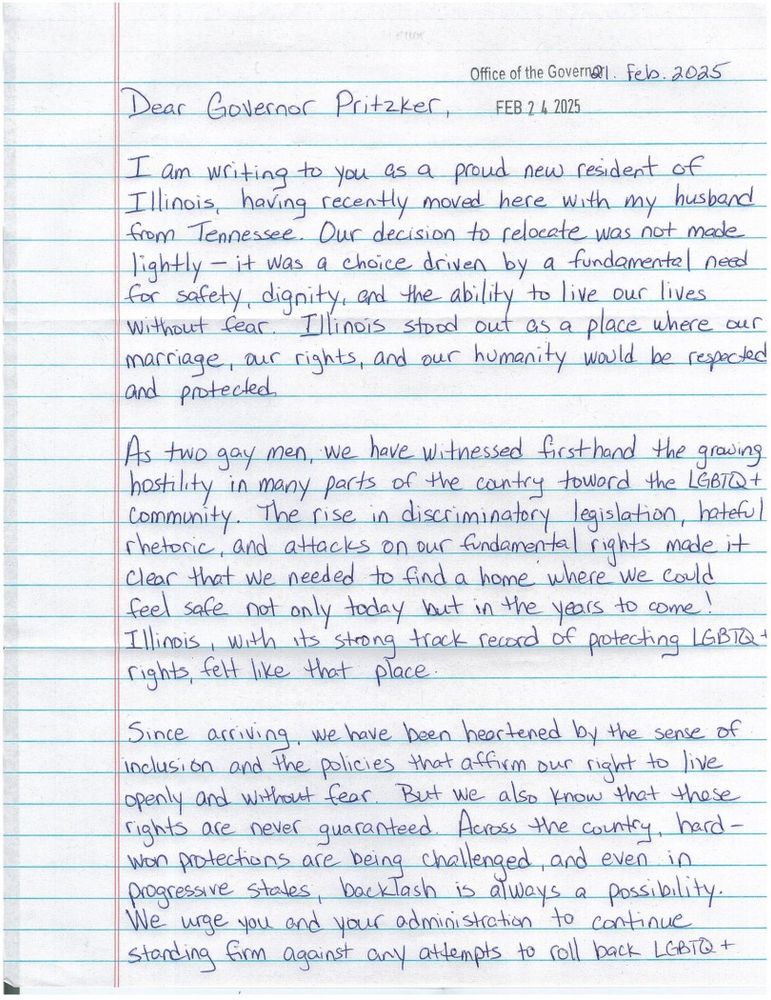 Office of the Governor 21. Feb. 2025
Dear Governor Pritzker,
FEB 24 2025
I am writing to you as a proud new resident of
Illinois, having recently moved here with my husband
from Tennessee. Our decision to relocate was not made
lightly — it was a choice driven by a fundamental need
for safety, dignity, and the ability to live our lives
without fear. Illinois stood out as a place where our
marriage, our rights, and our humanity would be respected
and protected.
As two gay men, we have witnessed firsthand the growing
hostility in many parts of the country toward the LGBTQ+
community. The rise in discriminatory legislation, hateful
rhetoric, and attacks on our fundamental rights made it
clear that we needed to find a home where we could
feel safe not only today but in the years to come!
Illinois, with its strong track record of protecting LGBTQ+
rights, felt like that place.
Since arriving, we have been heartened by the sense of
inclusion and the policies that affirm our right to live
openly and without fear. But we also know that these
rights are never guaranteed. Across the country, hard-
won protections are being challenged, and even in
progressive states, backlash is always a possibility.
We urge you and your administration to continue
standing firm against any attempts to roll back LGBTQ+